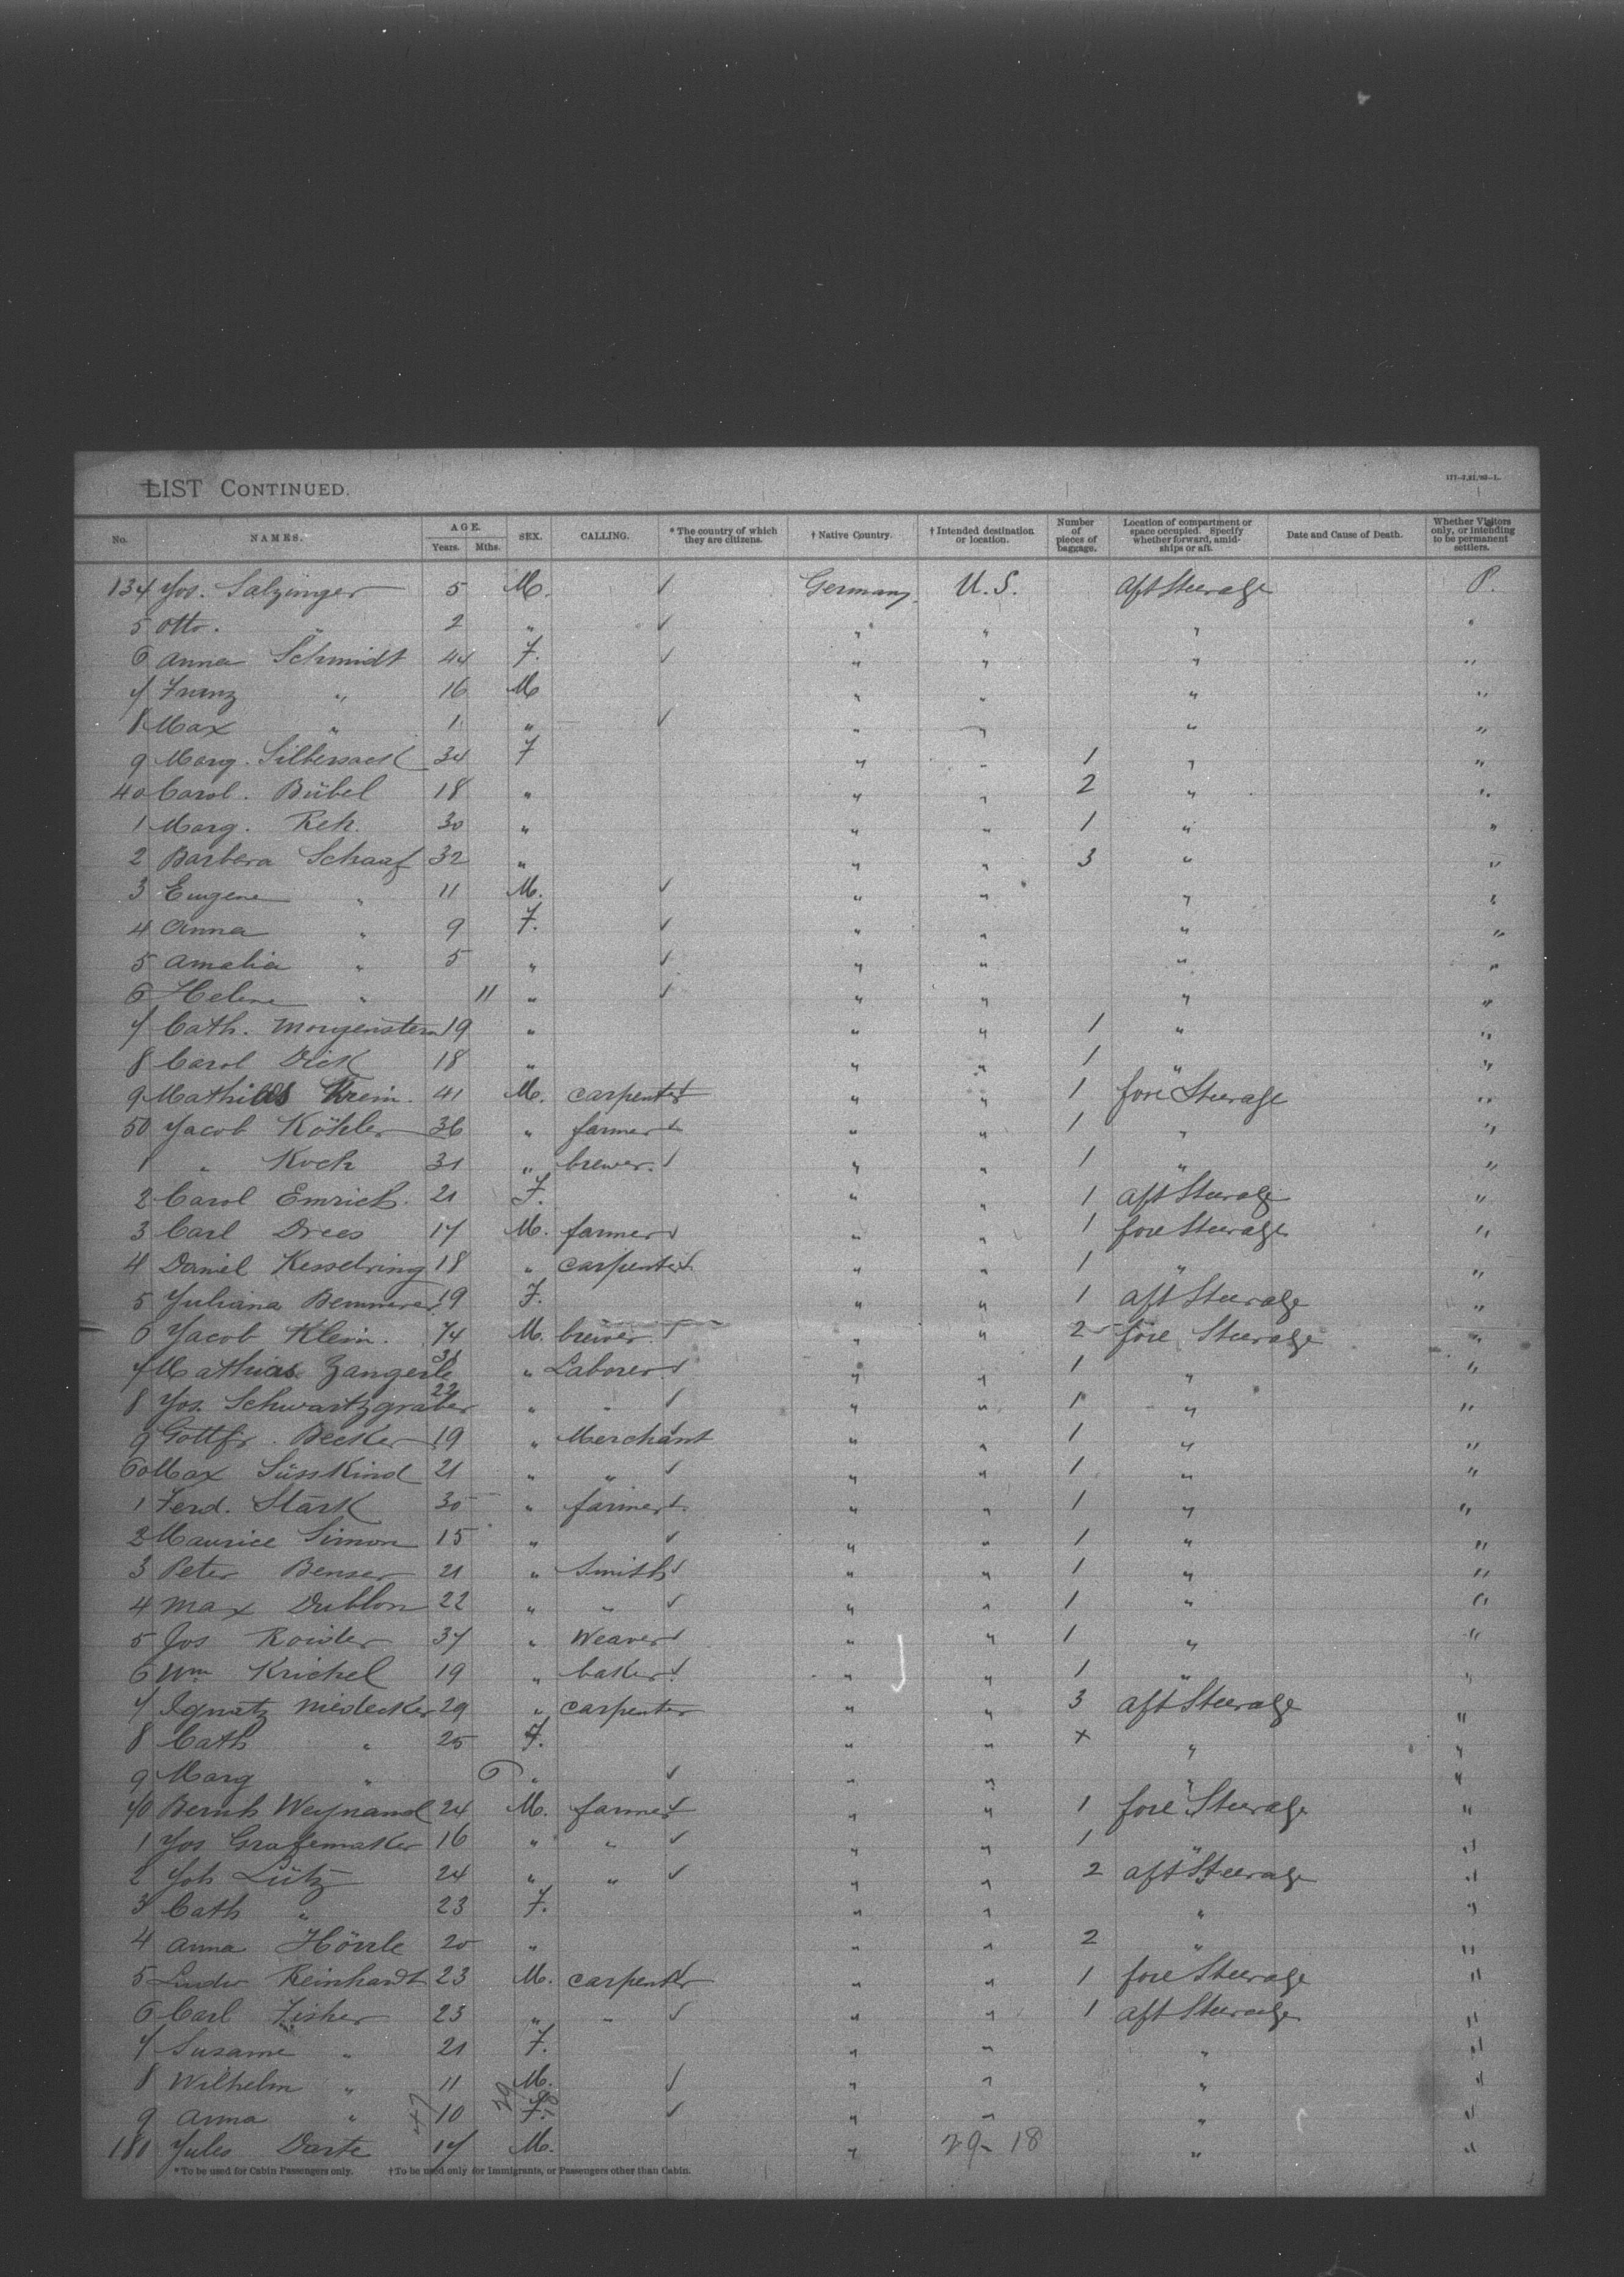 LIST CONTINUED.
177-7,21,'93-1.
No. NAMES. AGE. Years. Mths. SEX. CALLING. * The country of which they are citizens. † Native Country. † Intended destination or location. Number of pieces of baggage. Location of compartment or space occupied. Specify whether forward, amidships or aft. Date and Cause of Death. Whether Visitors only, or intending to be permanent settlers.
134 Jos. Salzinger 5 M. ✓ Germany U.S. aft Steerage P.
5 Otto. " 2 " ✓ " " " "
6 Anna Schmidt 44 F. ✓ " " " "
7 Franz " 16 M " " " "
8 Max " 1 " ✓ " " " "
9 Marg. Silbersack 34 F " " 1 " "
40 Carol. Bübel 18 " " " 2 " "
1 Marg. Reh. 30 " " " 1 " "
2 Barbera Schaaf 32 " " " 3 " "
3 Eugene " 11 M. ✓ " " " "
4 Anna " 9 F. ✓ " " " "
5 Amalia " 5 " ✓ " " " "
6 Helene " 11 " ✓ " " " "
7 Cath. Morgenstern 19 " " " 1 " "
8 Carol Dick 18 " " " 1 " "
9 Mathias Krein. 41 M. carpenter ✓ " " 1 fore Steerage "
50 Jacob Köhler 36 " farmer ✓ " " 1 " "
1 " Koch 31 " brewer. ✓ " " 1 " "
2 Carol Emrich. 21 F. " " 1 aft Steerage "
3 Carl Drees 17 M. farmer ✓ " " 1 fore Steerage "
4 Daniel Kesselring 18 " carpenter ✓ " " 1 " "
5 Juliana Bemmerer 19 F. " " 1 aft Steerage "
6 Jacob Klein. 74 M. brewer ✓ " " 2 fore Steerage "
7 Mathias Zangerle 31 " Laborer ✓ " " 1 " "
8 Jos. Schwartzgraber 22 " " ✓ " " 1 " "
9 Gottfr. Becker 19 " Merchant ✓ " " 1 " "
60 Max Süsskind 21 " " ✓ " " 1 " "
1 Ferd. Stark 30 " farmer ✓ " " 1 " "
2 Maurice Simon 15 " ✓ " " 1 " "
3 Peter Benser 21 " Smith ✓ " " 1 " "
4 Max Dublon 22 " " ✓ " " 1 " "
5 Jos Roider 37 " Weaver ✓ " " 1 " "
6 Wm Krichel 19 " baker ✓ " " 1 " "
7 Ignatz Niedecker 29 " carpenter " " 3 aft Steerage "
8 Cath " 25 F. " " x " "
9 Marg " 6 " ✓ " " " "
70 Bernh Weynand 24 M. farmer ✓ " " 1 fore Steerage "
1 Jos Grafemaker 16 " " ✓ " " 1 " "
2 Joh Lütz 24 " " ✓ " " 2 aft Steerage "
3 Cath " 23 F. " " " "
4 Anna Hörrle 20 " " " 2 " "
5 Ludw Reinhardt 23 M. carpenter ✓ " " 1 fore Steerage "
6 Carl Fisher 23 " " ✓ " " 1 aft Steerage "
7 Susanne " 21 F. " " " "
8 Wilhelm " 11 M. ✓ " " " "
9 Anna " 10 F. ✓ " " " "
180 Jules Darte 17 M. " 29- 18 " "
* To be used for Cabin Passengers only. † To be used only for Immigrants, or Passengers other than Cabin.